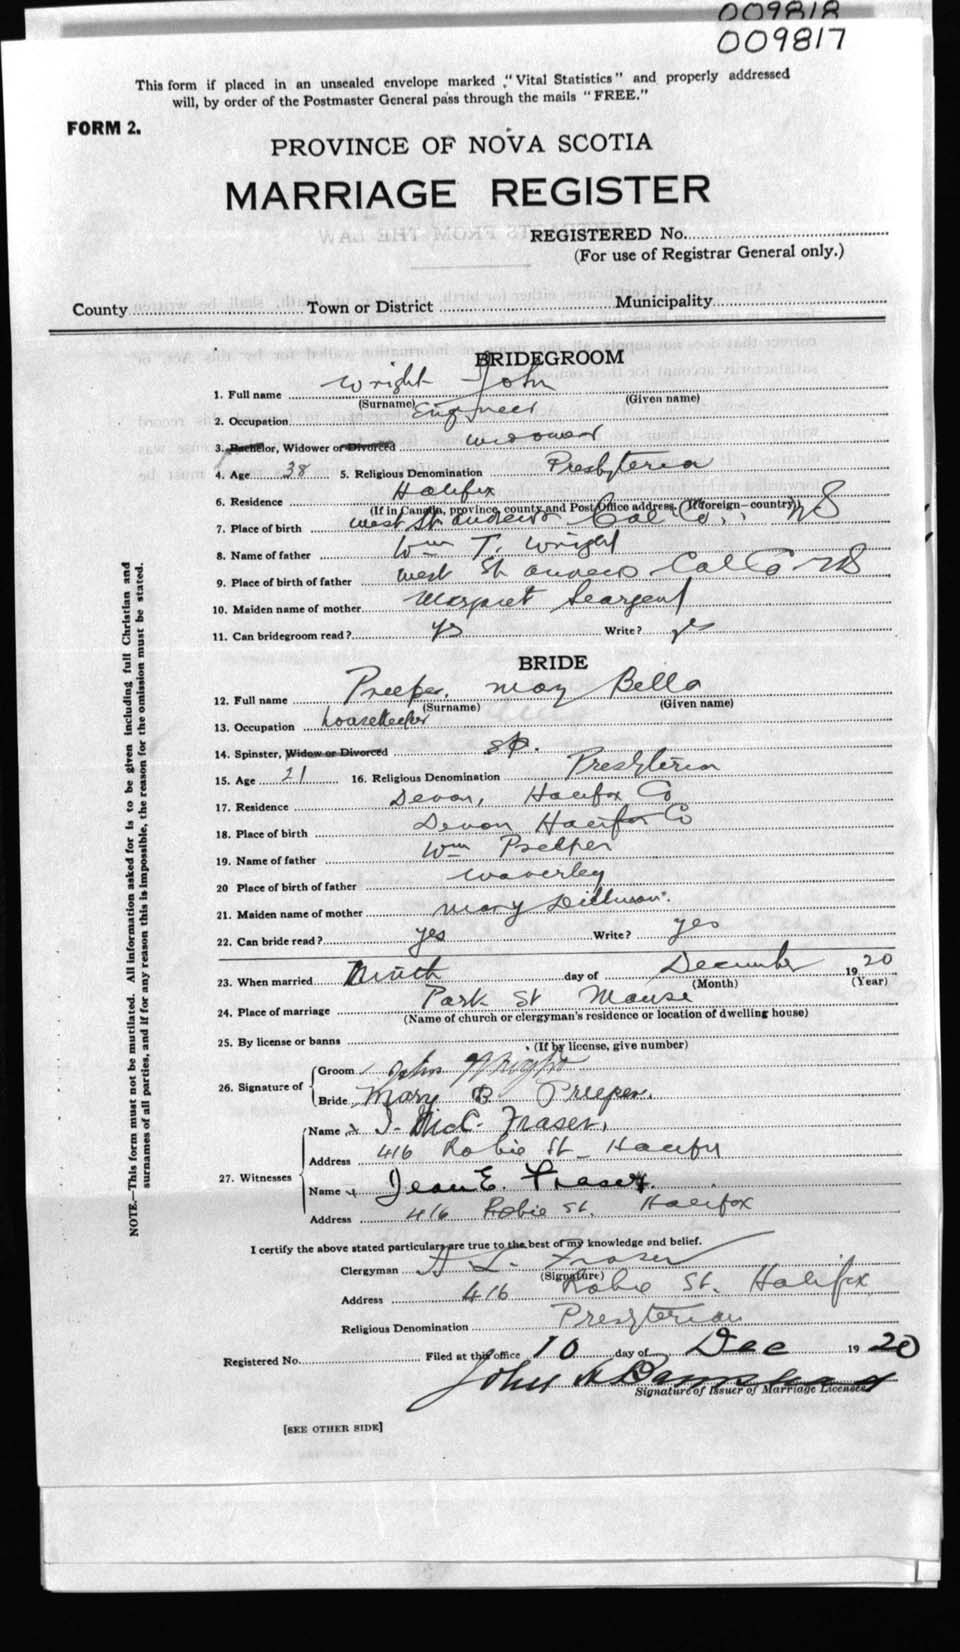 009818
009817
This form if placed in an unsealed envelope marked "Vital Statistics" and properly addressed
will, by order of the Postmaster General pass through the mails "FREE."
FORM 2.
PROVINCE OF NOVA SCOTIA
MARRIAGE REGISTER
REGISTERED No.
(For use of Registrar General only.)
County Town or District Municipality
BRIDEGROOM
1. Full name Wright John
(Surname) (Given name)
2. Occupation Engineer
3. Bachelor, Widower or Divorced widower
4. Age 38 5. Religious Denomination Presbyteria
6. Residence Halifax
(If in Canada, province, county and Post Office address. If foreign—country)
7. Place of birth West St. Andrews Col. Co., NS
8. Name of father Wm T. Wright
9. Place of birth of father West St Andrews Col Co NS
10. Maiden name of mother Margaret Seargent
11. Can bridegroom read? yes Write? yes
BRIDE
12. Full name Preeper, May Bella
(Surname) (Given name)
13. Occupation housekeeper
14. Spinster, Widow or Divorced sp.
15. Age 21 16. Religious Denomination Presbyterian
17. Residence Devon, Halifax Co
18. Place of birth Devon Halifax Co
19. Name of father Wm Preeper
20 Place of birth of father Waverley
21. Maiden name of mother Mary
22. Can bride read? yes Write? yes
23. When married Ninth day of December 1920
(Month) (Year)
24. Place of marriage Park St Manse
(Name of church or clergyman's residence or location of dwelling house)
25. By license or banns
(If by license, give number)
26. Signature of
Groom John Wright
Bride Mary B Preeper.
27. Witnesses
Name x J. McC. Fraser,
Address 416 Robie St. Halifax
Name x Jean E. Fraser.
Address 416 Robie St. Halifax
I certify the above stated particulars are true to the best of my knowledge and belief.
Clergyman A L. Fraser
(Signature)
Address 416 Robie St. Halifax
Religious Denomination Presbyterian
Registered No. Filed at this office 10 day of Dec 1920
John A Barnstead
Signature of Issuer of Marriage Licenses
[SEE OTHER SIDE]
NOTE.—This form must not be mutilated. All information asked for is to be given including full Christian and
surnames of all parties, and if for any reason this is impossible, the reason for the omission must be stated.